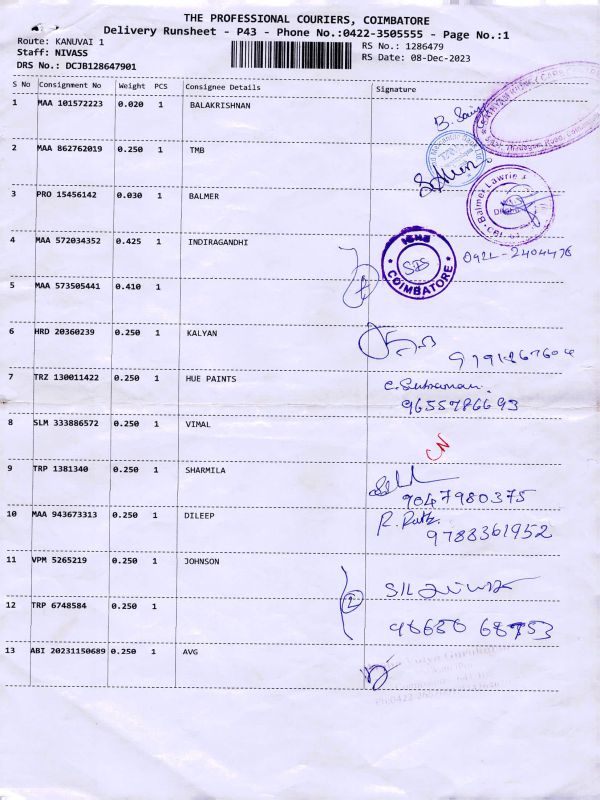 THE PROFESSIONAL COURIERS, COIMBATORE
Delivery Runsheet - P43 - Phone No.:0422-3505555 - Page No.:1
Route: KANUVAI 1
RS No.: 1286479
Staff: NIVASS
RS Date: 08-Dec-2023
DRS No.: DCJB128647901
S No Consignment No Weight PCS Consignee Details Signature
1 MAA 101572223 0.020 1 BALAKRISHNAN
2 MAA 862762019 0.250 1 TMB
3 PRO 15456142 0.030 1 BALMER
Balmer Lawrie
4 MAA 572034352 0.425 1 INDIRAGANDHI
COIMBATORE
0422-2404476
5 MAA 573505441 0.410 1
6 HRD 20360239 0.250 1 KALYAN
7 TRZ 130011422 0.250 1 HUE PAINTS
9655786693
8 SLM 333886572 0.250 1 VIMAL
9 TRP 1381340 0.250 1 SHARMILA
9047980375
10 MAA 943673313 0.250 1 DILEEP
9788361952
11 VPM 5265219 0.250 1 JOHNSON
2
12 TRP 6748584 0.250 1
13 ABI 20231150689 0.250 1 AVG